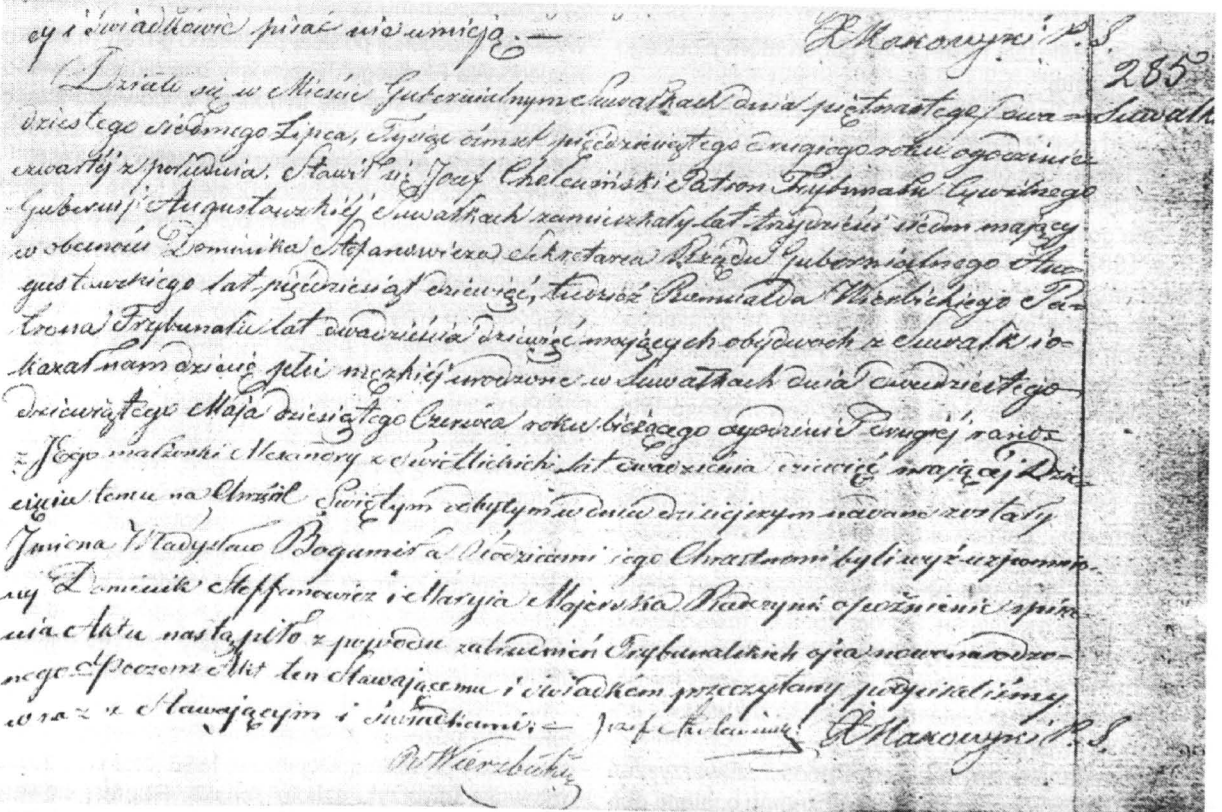 cy i Swiadkowie pisać nie umieją —
XMakowski P. S.
285
Suwałk
Działo się w Mieście Gubernialnym Suwałkach dnia piętnastego / dwu=
dziestego siódmego Lipca, Tysiąc ośmset pięćdziesiątego drugiego roku o godzinie
czwartej z południa. Stawił się Józef Chełmiński Patron Trybunału Cywilnego
Gubernij Augustowskiéj w Suwałkach zamieszkały lat trzydzieści siedm mający
w obecności Dominika Stefanowicza Sekretarza Rządu Gubernialnego Au=
gustowskiego lat pięćdziesiąt dziewięć, tudzież Romualda Wierzbickiego Pa=
trona Trybunału lat dwadzieścia dziewięć mających obydwóch z Suwałk i o=
kazał nam dziecię płci męzkiéj urodzone w Suwałkach dnia dwudziestego
dziewiątego Maja dziesiątego Czerwca roku bieżącego o godzinie drugiej rano
z Jego małżonki Alexandry z Swietlickich lat dwadzieścia dziewięć mającéj Dzie=
cięciu temu na Chrzcie Świętym odbytym w dniu dzisiejszym nadane zostały
Imiona Władysław Bogumił a Rodzicami jego Chrzestnemi byli wyż wzpomnio=
ny Dominik Steffanowicz i Maryja Majewska Radczyni opóźnienie spisa=
nia Aktu nastąpiło z powodu zatrudnień Trybunalskich ojca nowonarodzo=
nego Poczem Akt ten Stawającemu i Swiadkom przeczytany podpisaliśmy
wraz z Stawającym i Swiadkami.=
Józef Chełmiński
XMakowski P. S.
R Wierzbicki